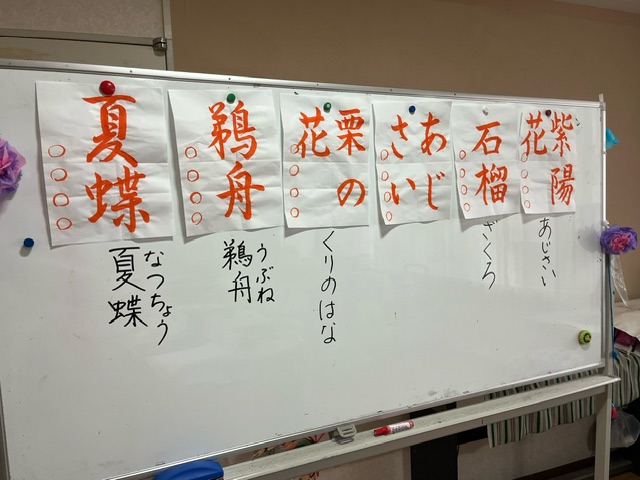 紫陽
花
石榴
あじ
さい
栗の
花
鵜舟
夏蝶
あじさい
ざくろ
くりのはな
うぶね
鵜舟
なつちょう
夏蝶